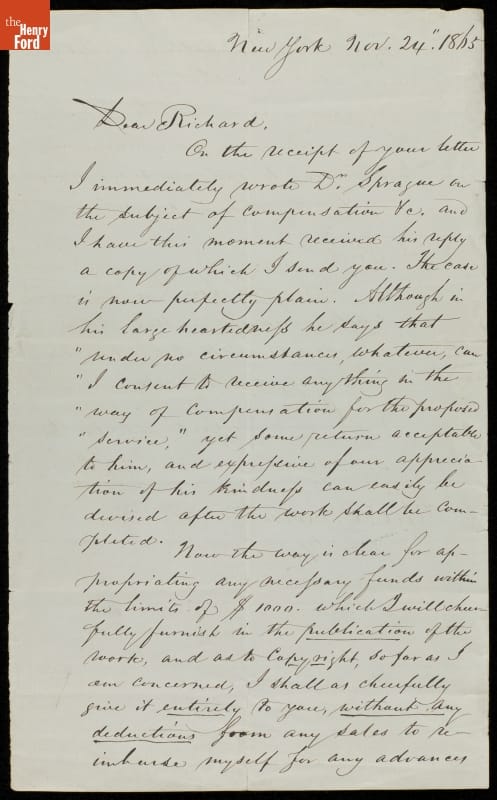 the
Henry
Ford
New York Nov. 24". 1865
Dear Richard,
On the receipt of your letter
I immediately wrote Dr. Sprague on
the subject of compensation &c. and
I have this moment received his reply
a copy of which I send you. The case
is now perfectly plain. Although in
his large heartedness he says that
"under no circumstances, whatever, can
"I consent to receive anything in the
"way of compensation for the proposed
"service," yet some return acceptable
to him, and expressive of our apprecia-
tion of his kindness can easily be
devised after the work shall be com-
pleted.
Now the way is clear for ap-
propriating any necessary funds within
the limits of $1000. which I will cheer-
fully furnish in the publication of the
work, and as to Copyright, so far as I
am concerned, I shall as cheerfully
give it entirely to you, without any
deductions from any sales to re-
imburse myself for any advances